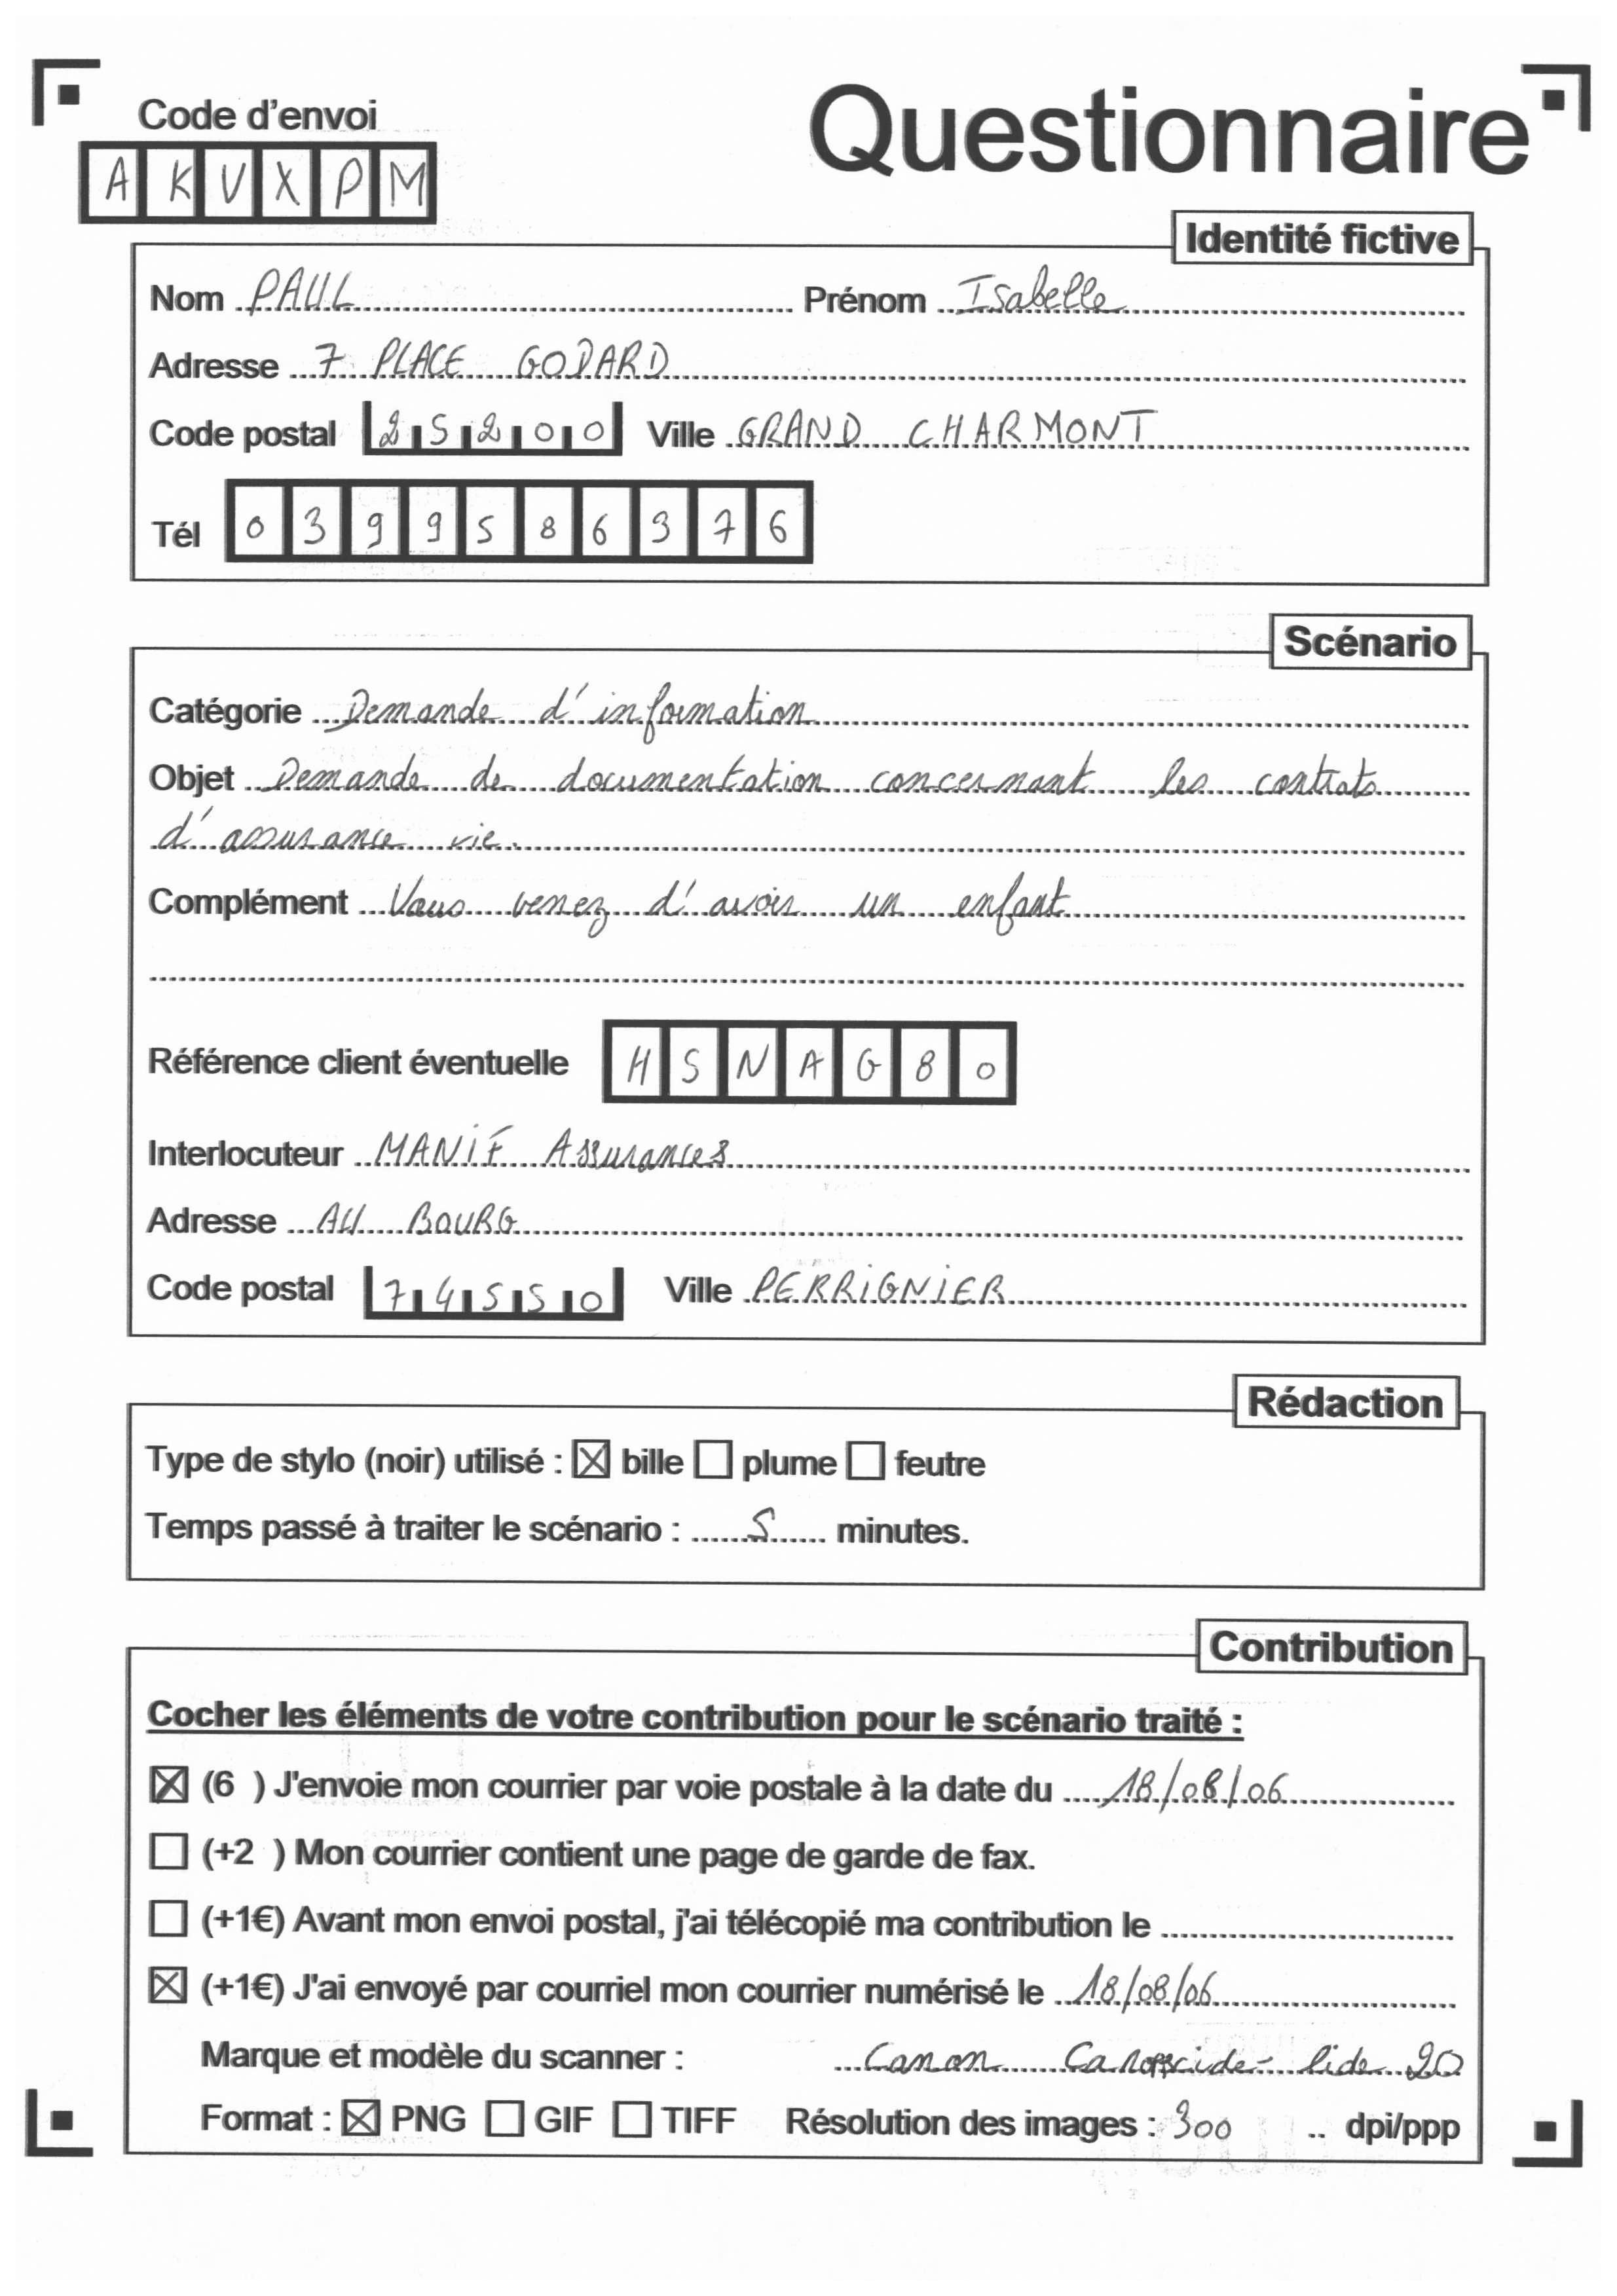 Code d'envoi
Questionnaire
A K V X P M
Identité fictive
Nom PAUL Prénom Isabelle
Adresse 7 PLACE GODARD
Code postal 25200 Ville GRAND CHARMONT
Tél 0399586376
Scénario
Catégorie Demande d'information
Objet Demande de documentation concernant les contrats
d'assurance vie.
Complément Vous venez d'avoir un enfant
Référence client éventuelle HSNAG80
Interlocuteur MANIF Assurances
Adresse AU BOURG
Code postal 74550 Ville PERRIGNIER
Rédaction
Type de stylo (noir) utilisé : ☒ bille ☐ plume ☐ feutre
Temps passé à traiter le scénario : 5 minutes.
Contribution
Cocher les éléments de votre contribution pour le scénario traité :
☒ (6 ) J'envoie mon courrier par voie postale à la date du 18/08/06
☐ (+2 ) Mon courrier contient une page de garde de fax.
☐ (+1€) Avant mon envoi postal, j'ai télécopié ma contribution le
☒ (+1€) J'ai envoyé par courriel mon courrier numérisé le 18/08/06
Marque et modèle du scanner : Canon lide 20
Format : ☒ PNG ☐ GIF ☐ TIFF Résolution des images : 300 .. dpi/ppp